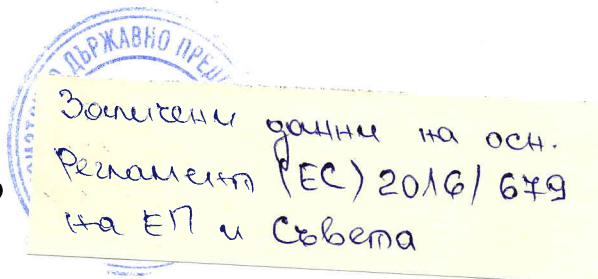 ДЪРЖАВНО ПРЕД
Заличени данни на осн.
Регламент (ЕС) 2016/679
на ЕП и Съвета